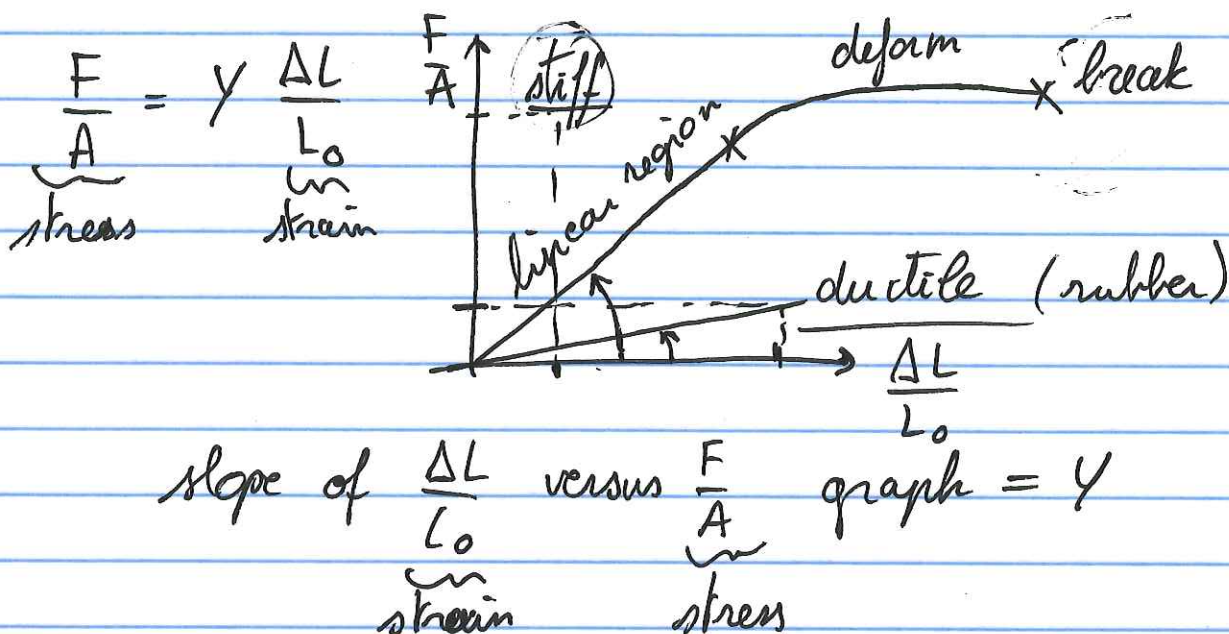 F/A = Y ΔL/L₀
stress strain
F/A
stiff
linear region
deform
break
ductile (rubber)
ΔL/L₀
slope of ΔL/L₀ versus F/A graph = Y
strain stress